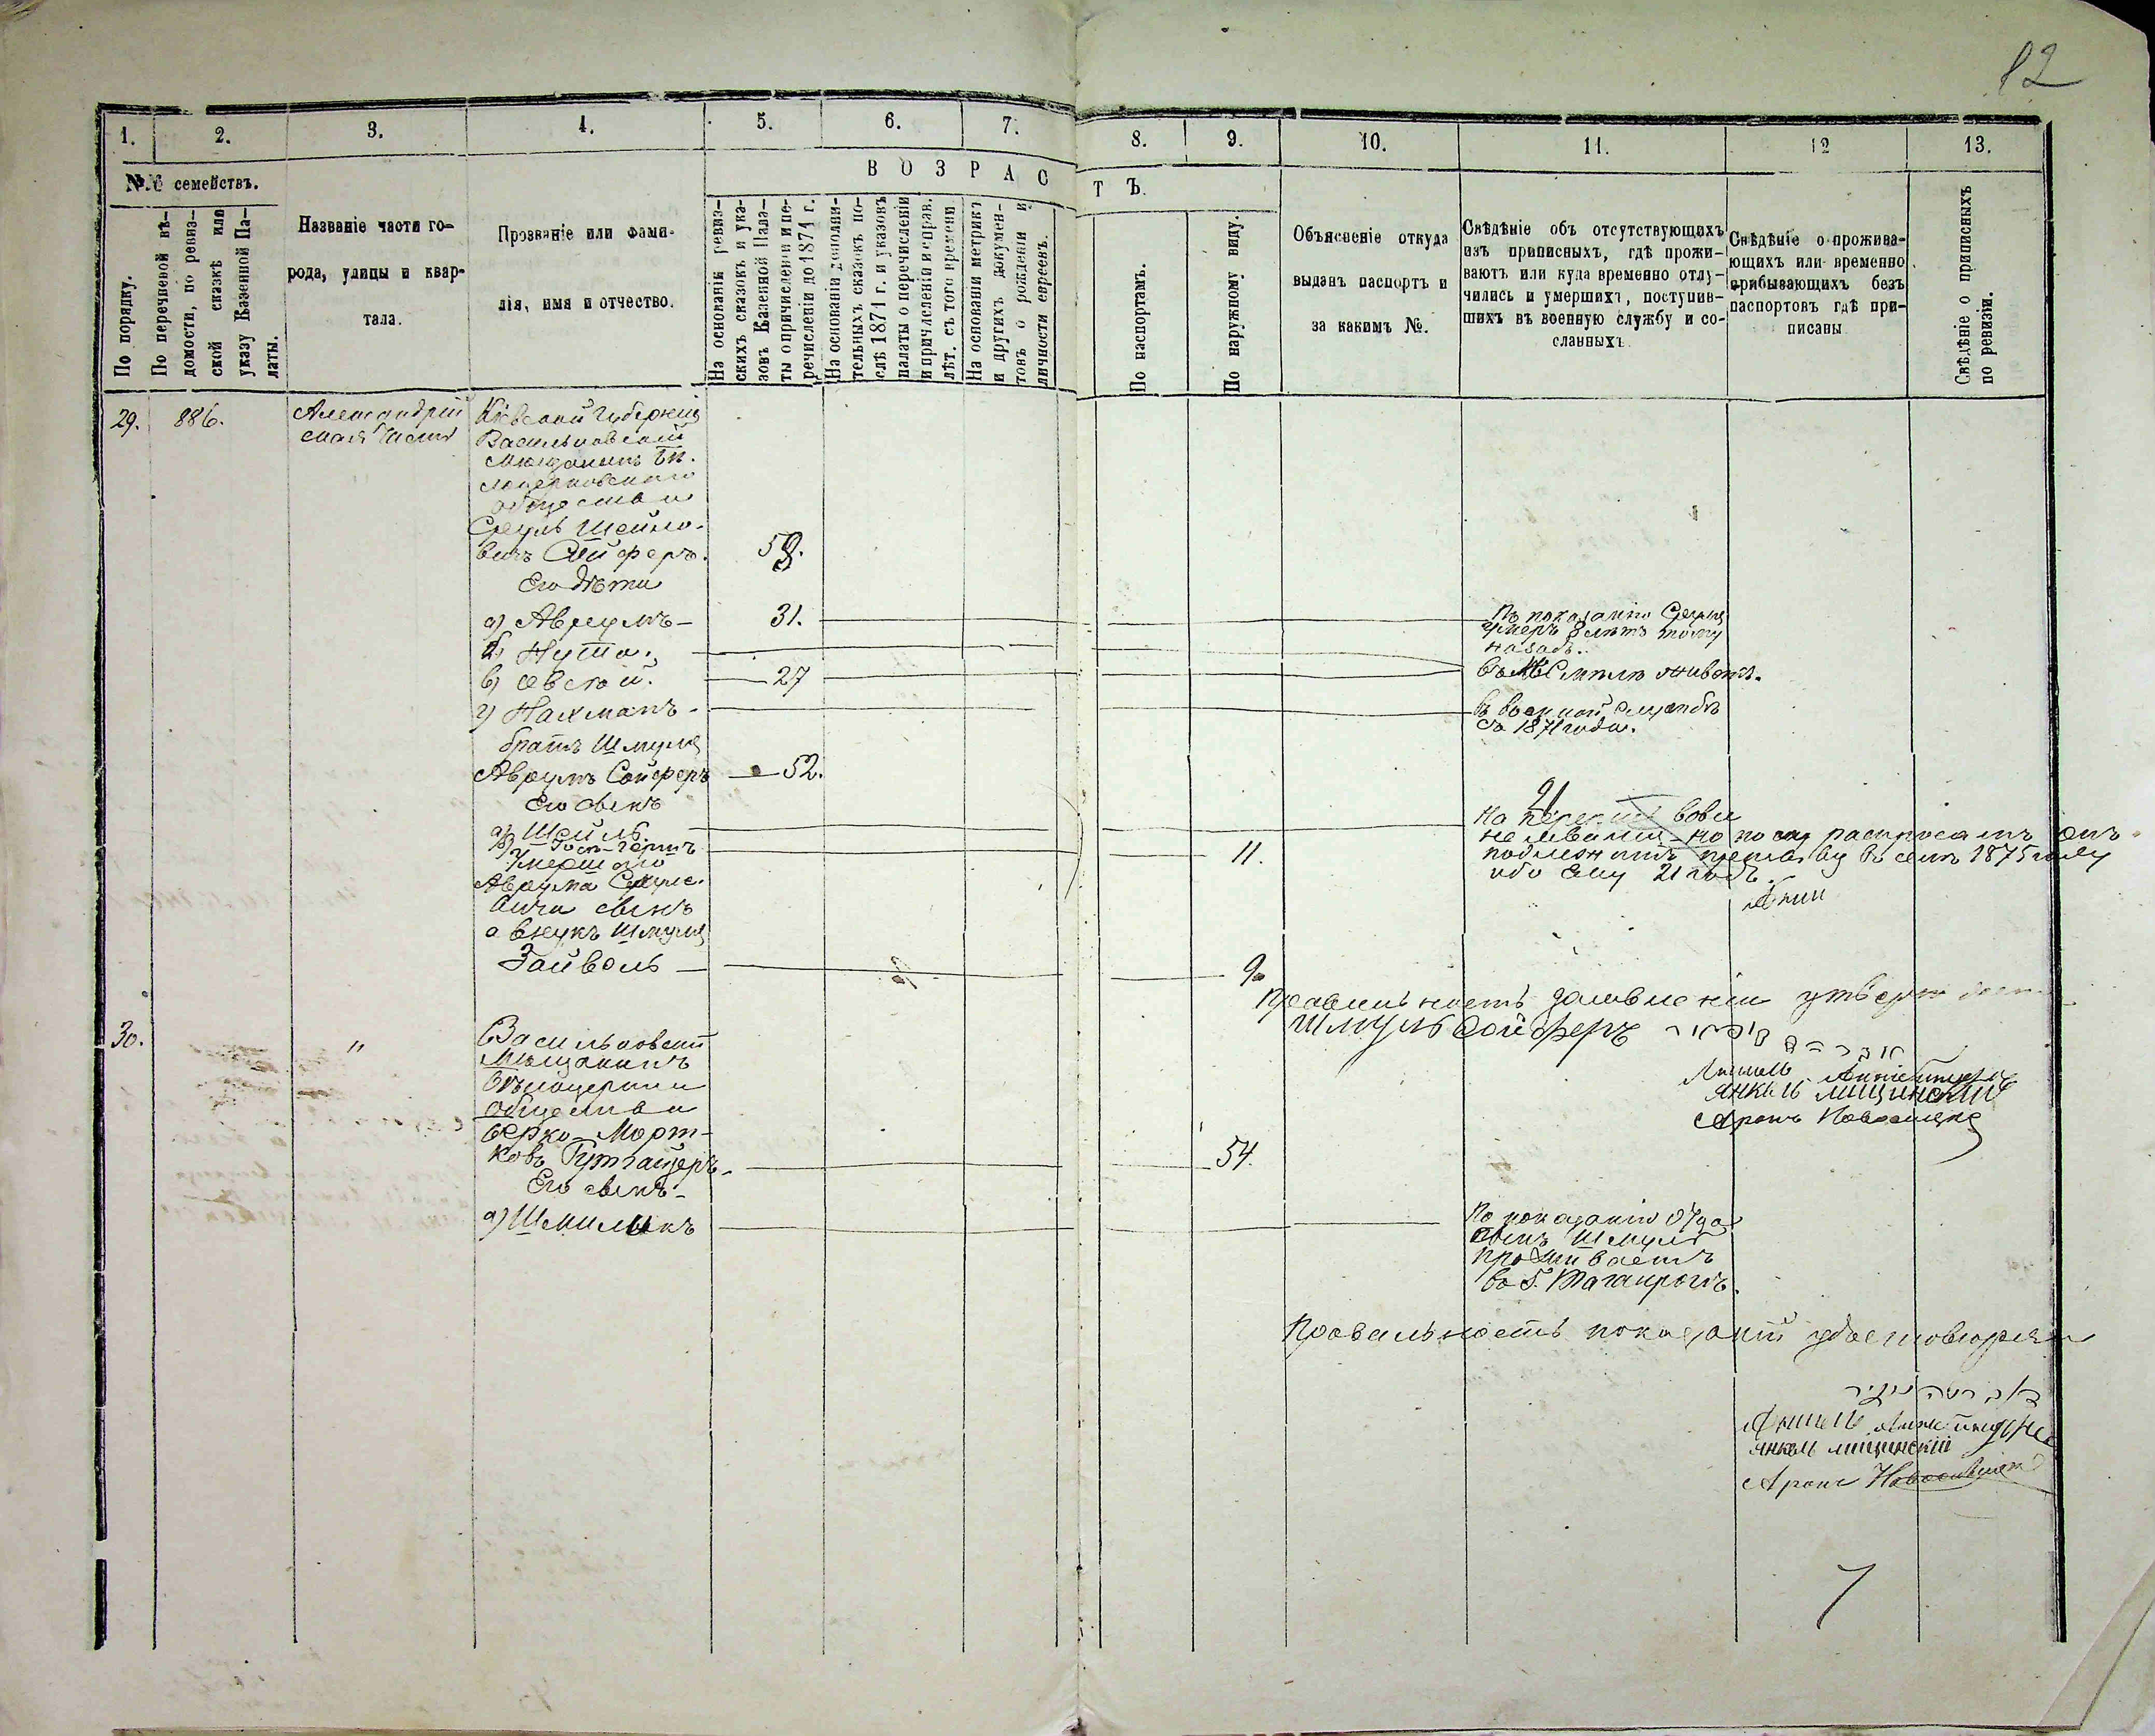 82
1. 2. 3. 4. 5. 6. 7. 8. 9. 10. 11. 12 13.
№№ семействъ.
По порядку.
По перечневой вѣ-
домости, по ревиз-
ской сказкѣ или
указу Казенной Па-
латы.
Названіе части го-
рода, улицы и квар-
тала.
Прозваніе или фами-
лія, имя и отчество.
ВОЗРАСТЪ.
На основаніи ревиз-
скихъ сказокъ и ука-
зовъ Казенной Пала-
ты о причисленіи и пе-
речисленіи до 1871 г.
На основаніи дополни-
тельныхъ сказокъ по-
слѣ 1871 г. и указовъ
палаты о перечисленіи
и причисленіи и справ.
лѣт. съ того времени.
На основаніи метрикъ
и другихъ докумен-
товъ о рожденіи и
личности евреевъ.
По паспортамъ.
По наружному виду.
Объясненіе откуда
выданъ паспортъ и
за какимъ №.
Свѣдѣніе объ отсутствующихъ
изъ приписныхъ, гдѣ прожи-
ваютъ или куда временно отлу-
чились и умершихъ, поступив-
шихъ въ военную службу и со-
сланныхъ.
Свѣдѣніе о прожива-
ющихъ или временно
прибывающихъ безъ
паспортовъ гдѣ при-
писаны
Свѣдѣніе о приписныхъ
по ревизіи.
29. 886. Александрій
ская часть
Кіевской Губерніи
Васильковскій
Мѣщанинъ Бѣ.
лоцерковскаго
общества
Сруль Шейлио-
вичъ Сойферъ. 58.
Его дѣти
а) Аврумъ 31. По показанію Сруля
умеръ 8 лѣтъ тому
назадъ.
б) Нута.
в) Евсей. 27 въ живетъ.
г) Нахманъ въ военной службѣ
съ 1871 года.
братъ Шмуля
Аврумъ Сойферъ 52.
Его сынъ
21
а) Шейль. На вовсе
не но по распросамъ онъ
б) Гось-Герцъ 11. подлежитъ призыву въ семъ 1875 году
ибо ему 21 годъ.
умершаго
Аврума Сруле-
вича сынъ
а внукъ Шмуля
Зайволь 9
Правильность заявленія утверждаемъ
Шмуль Сойферъ
Янкель Мищинскій
Аронъ
30. " Васильковскій
Мѣщанинъ
Бѣлоцеркви
общества
Берко Морт-
ковъ Гутгацеръ 54.
Его сынъ
а) Шмилыкъ По показанію отца
сынъ Шмуль
проживаетъ
въ г. Таганрогѣ.
Правильность показаній удостовѣряемъ
Янкель Мищинскій
Аронъ
7